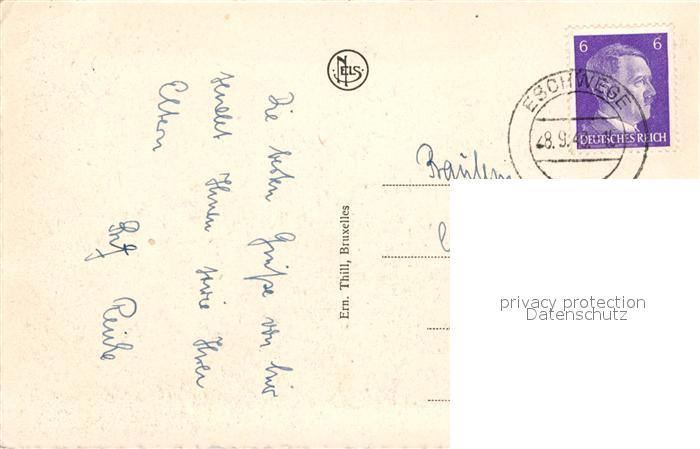 Die besten Grüße von hier
sendet Ihnen sowie Ihren
Eltern
NELS
Ern. Thill, Bruxelles
6 6
DEUTSCHES REICH
ESCHWEGE
privacy protection
Datenschutz